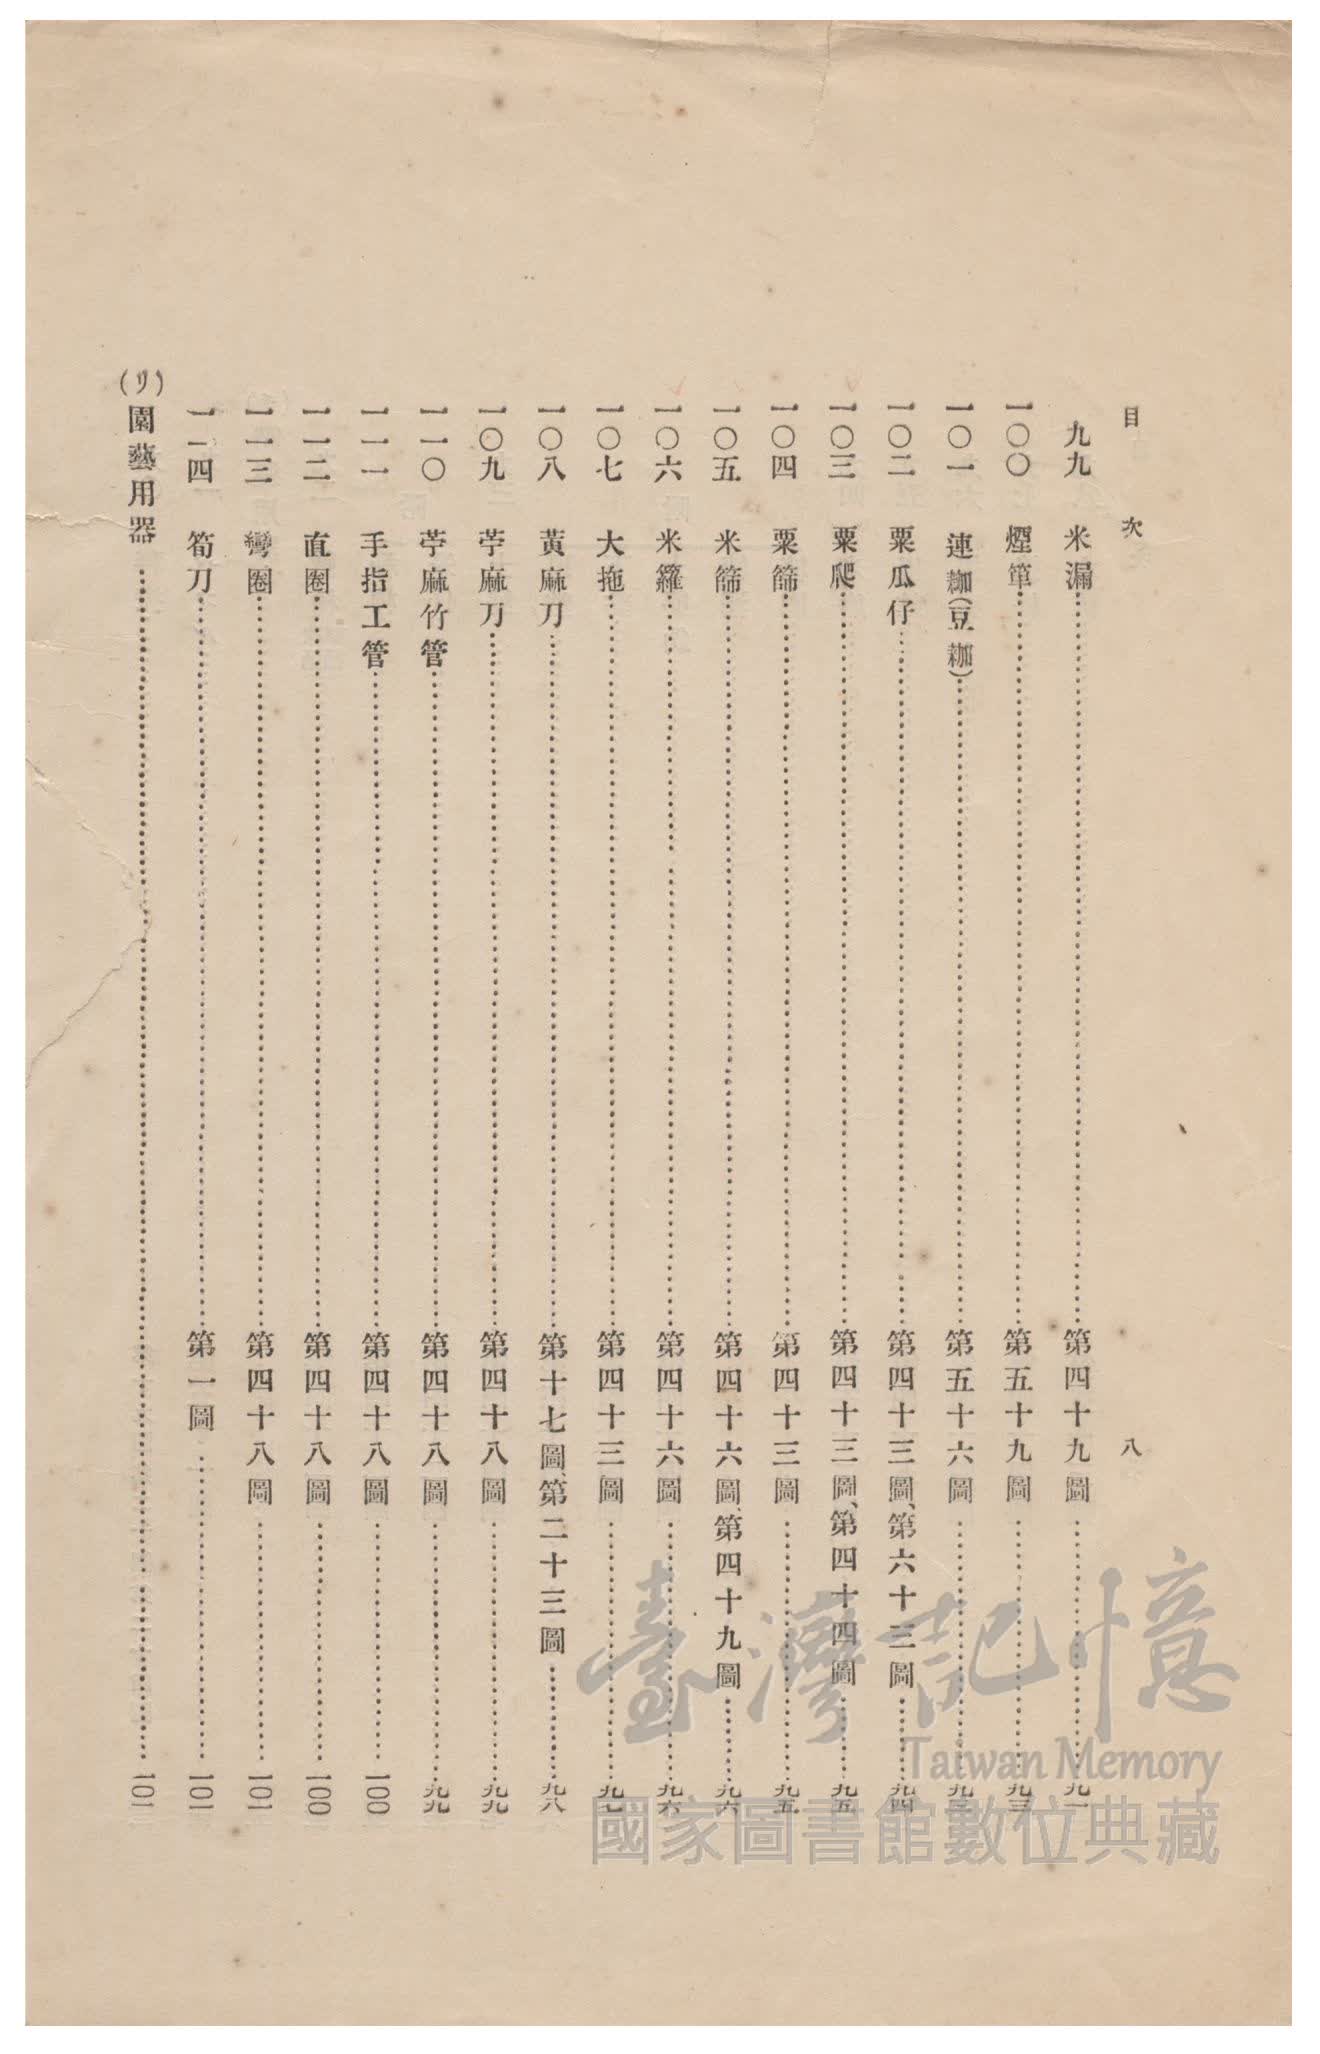 目次 八
九九 米漏……第四十九圖……九一
一〇〇 煙箄……第五十九圖……九三
一〇一 連耞(豆耞)……第五十六圖……九三
一〇二 粟瓜仔……第四十三圖、第六十三圖……九四
一〇三 粟爬……第四十三圖、第四十四圖……九五
一〇四 粟篩……第四十三圖……九五
一〇五 米篩……第四十六圖、第四十九圖……九六
一〇六 米籮……第四十六圖……九六
一〇七 大拖……第四十三圖……九七
一〇八 黃麻刀……第十七圖、第二十三圖……九八
一〇九 苧麻刀……第四十八圖……九九
一一〇 苧麻竹管……第四十八圖……九九
一一一 手指工管……第四十八圖……一〇〇
一一二 直圈……第四十八圖……一〇〇
一一三 彎圈……第四十八圖……一〇一
一一四 筍刀……第一圖……一〇一
(リ)園藝用器……一〇一
臺灣記憶
Taiwan Memory
國家圖書館數位典藏